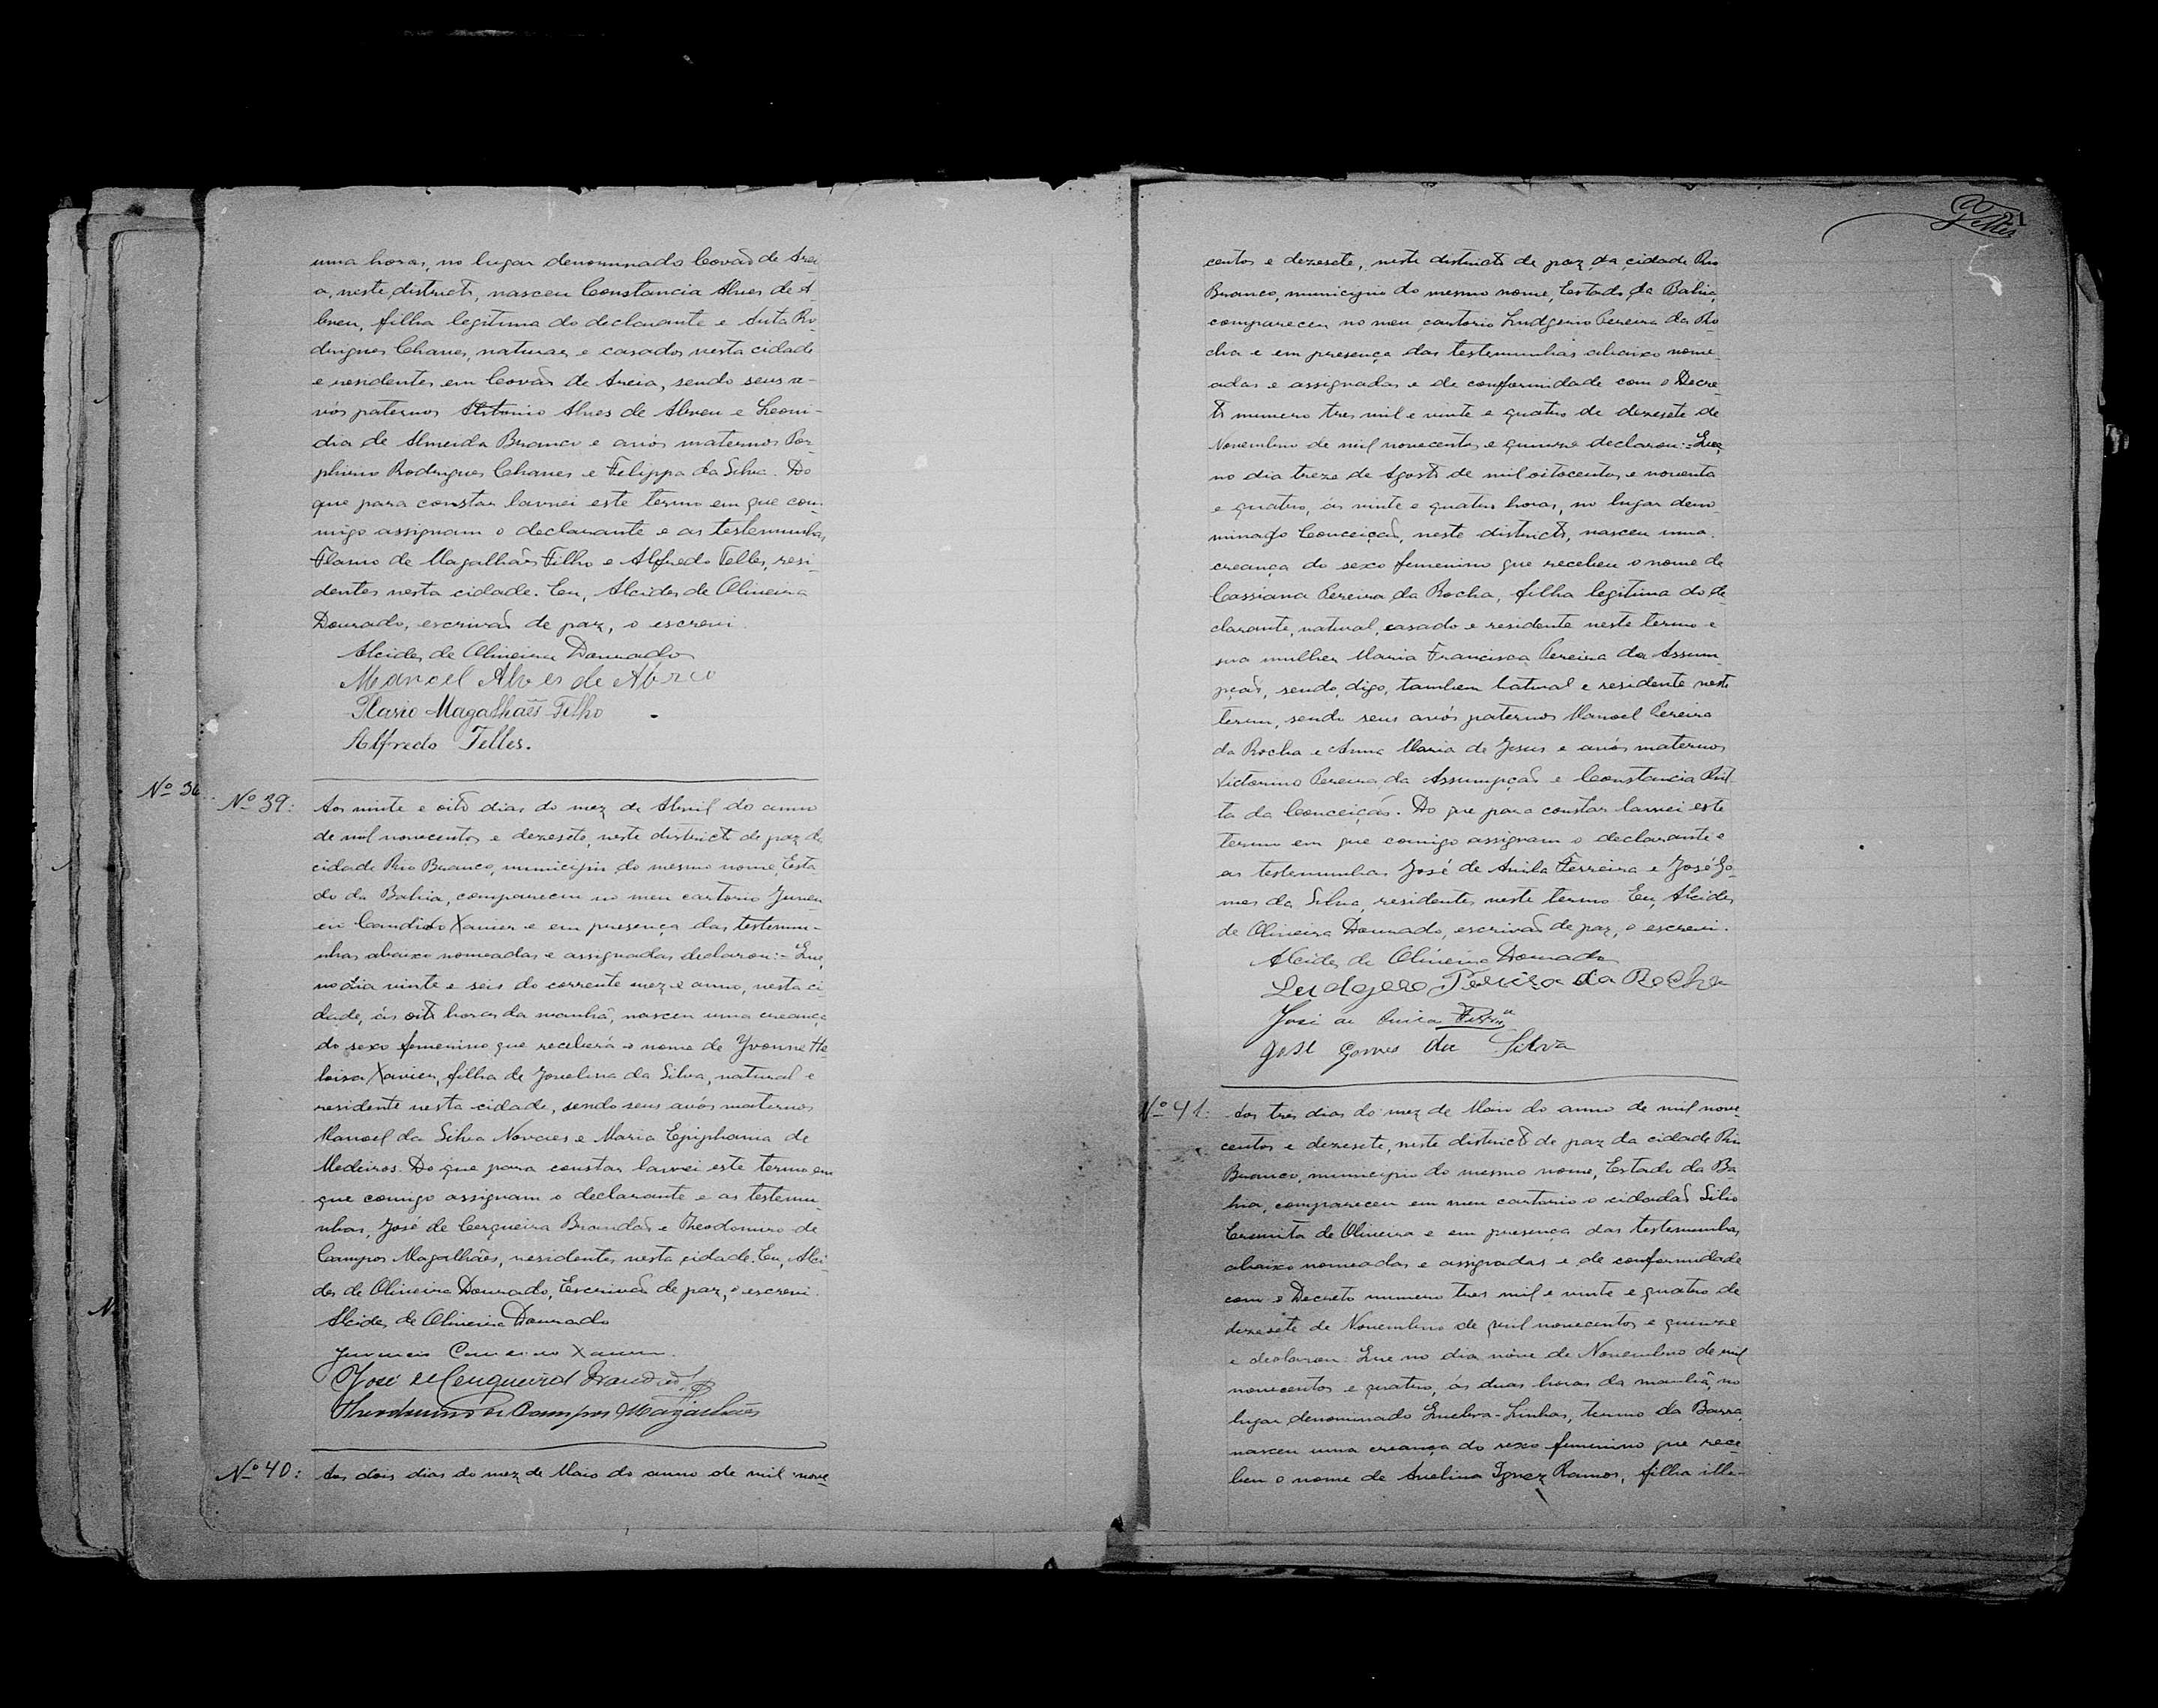 uma horas, no lugar denominado Covão de Arei
a, neste districto, nasceu Constancia Alves de A-
breu, filha legitima do declarante e Anta Ro-
drigues Chaves, naturaes e casados nesta cidade
e residentes em Covão de Areia, sendo seus a-
vós paternos Antonio Alves de Abreu e Leoni-
dia de Almeida Branco e avós maternos Por-
phirio Rodrigues Chaves e Felippa da Silva. Do
que para constar lavrei este termo em que com-
migo assignam o declarante e as testemunhas,
Flavio de Magalhães Filho e Alfredo Telles, resi-
dentes nesta cidade. Eu, Alcides de Oliveira
Dourado, escrivão de paz, o escrevi.
Alcides de Oliveira Dourado
Manoel Alves de Abreo
Flavio Magalhães Filho
Alfredo Telles.
Nº 36
Nº 39:
Aos vinte e oito dias do mez de Abril do anno
de mil novecentos e dezesete, neste districto de paz da
cidade Rio Branco, municipio do mesmo nome, Esta
do da Bahia, compareceu no meu cartorio Juven-
cio Candido Xavier e em presença das testemu-
nhas abaixo nomeadas e assignadas declarou:- Que,
no dia vinte e seis do corrente mez e anno, nesta ci-
dade, ás oito horas da manhã, nasceu uma creança
do sexo femenino que receberá o nome de Yvonne He
loisa Xavier, filha de Jovelina da Silva, natural e
residente nesta cidade, sendo seus avós maternos
Manoel da Silva Novaes e Maria Epiphania de
Medeiros. Do que para constar lavrei este termo em
que comigo assignam o declarante e as testemu-
nhas, José de Cerqueira Brandão e Theodomiro de
Campos Magalhães, residentes nesta cidade. Eu, Alci-
des de Oliveira Dourado, Escrivão de paz, o escrevi.
Alcides de Oliveira Dourado
Juvencio Candido Xavier.
José de Cerqueira Brandão
Theodomiro de Campos Magalhães
Nº 40:
Aos dois dias do mez de Maio do anno de mil nove
Telles
21
centos e dezesete, neste districto de paz da cidade Rio
Branco, municipio do mesmo nome, Estado da Bahia,
compareceu no meu cartorio Ludgerio Pereira da Ro
cha e em presença das testemunhas abaixo nome
adas e assignadas e de conformidade com o Decre
to numero tres mil e vinte e quatro de dezesete de
Novembro de mil novecentos e quinze declarou:- Que,
no dia treze de Agosto de mil oitocentos e noventa
e quatro, ás vinte e quatro horas, no lugar deno
minado Conceição, neste districto, nasceu uma
creança do sexo femenino que recebeu o nome de
Cassiana Pereira da Rocha, filha legitima do de
clarante, natural, casado e residente neste termo e
sua mulher Maria Francisca Pereira da Assum
pção, sendo, digo, tambem natural e residente neste
termo, sendo seus avós paternos Manoel Pereira
da Rocha e Anna Maria de Jesus e avós maternos
Victorino Pereira da Assumpção e Constancia Rit
ta da Conceição. Do que para constar lavrei este
termo em que comigo assignam o declarante e
as testemunhas José de Avila Ferreira e José Go-
mes da Silva, residentes neste termo. Eu, Alcides
de Oliveira Dourado, escrivão de paz, o escrevi.
Alcides de Oliveira Dourado
Ludgero Pereira da Rocha
José de Avila Ferrª
José Gomes da Silva
Nº 41:
Aos tres dias do mez de Maio do anno de mil nove
centos e dezesete, neste districto de paz da cidade Rio
Branco, municipio do mesmo nome, Estado da Ba
hia, compareceu em meu cartorio o cidadão Silio
Eremita de Oliveira e em presença das testemunhas
abaixo nomeadas e assignadas e de conformidade
com o Decreto numero tres mil e vinte e quatro de
dezesete de Novembro de mil novecentos e quinze
e declarou: Que no dia nove de Novembro de mil
novecentos e quatro, ás duas horas da manhã, no
lugar denominado Quebra-Linhas, termo da Barra,
nasceu uma creança do sexo femenino que rece
beu o nome de Avelina Ignez Ramos, filha ille-